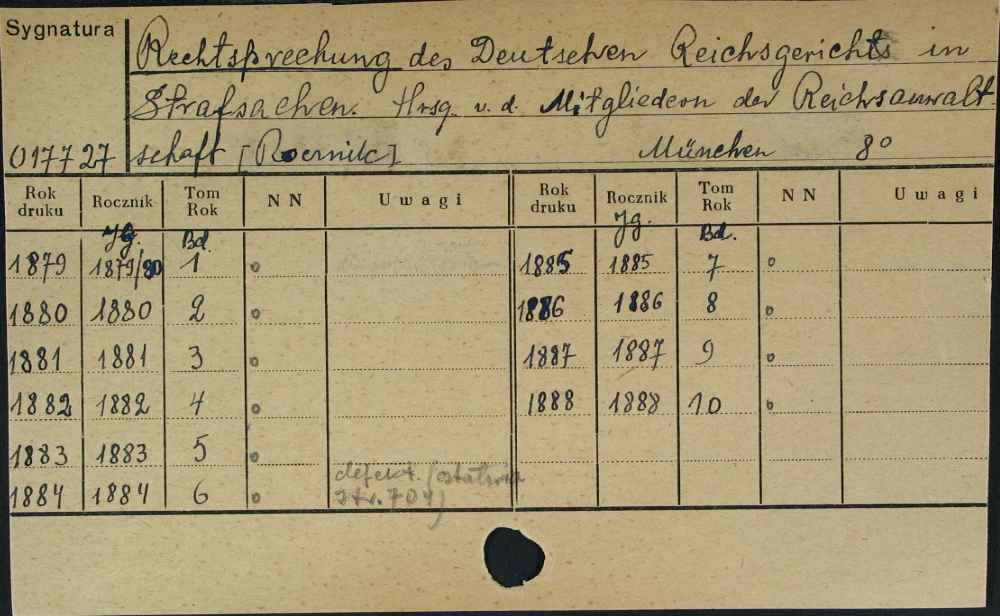 Sygnatura
Rechtsprechung des Deutschen Reichsgerichts in
Strafsachen. Hrsg. v. d. Mitgliedern der Reichsanwalt-
017727 schaft [Rocznik] München 8°
Rok druku Rocznik Tom Rok NN Uwagi Rok druku Rocznik Tom Rok NN Uwagi
Jg. Bd. Jg. Bd.
1879 1879/80 1 o 1885 1885 7 o
1880 1880 2 o 1886 1886 8 o
1881 1881 3 o 1887 1887 9 o
1882 1882 4 o 1888 1888 10 o
1883 1883 5 o
1884 1884 6 o defekt. (ostatnia
str. 704)